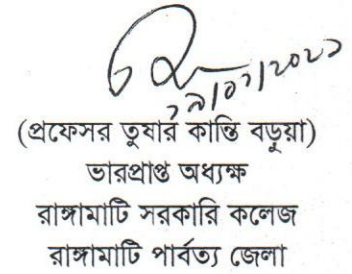 (প্রফেসর তুষার কান্তি বড়ুয়া)
ভারপ্রাপ্ত অধ্যক্ষ
রাঙ্গামাটি সরকারি কলেজ
রাঙ্গামাটি পার্বত্য জেলা